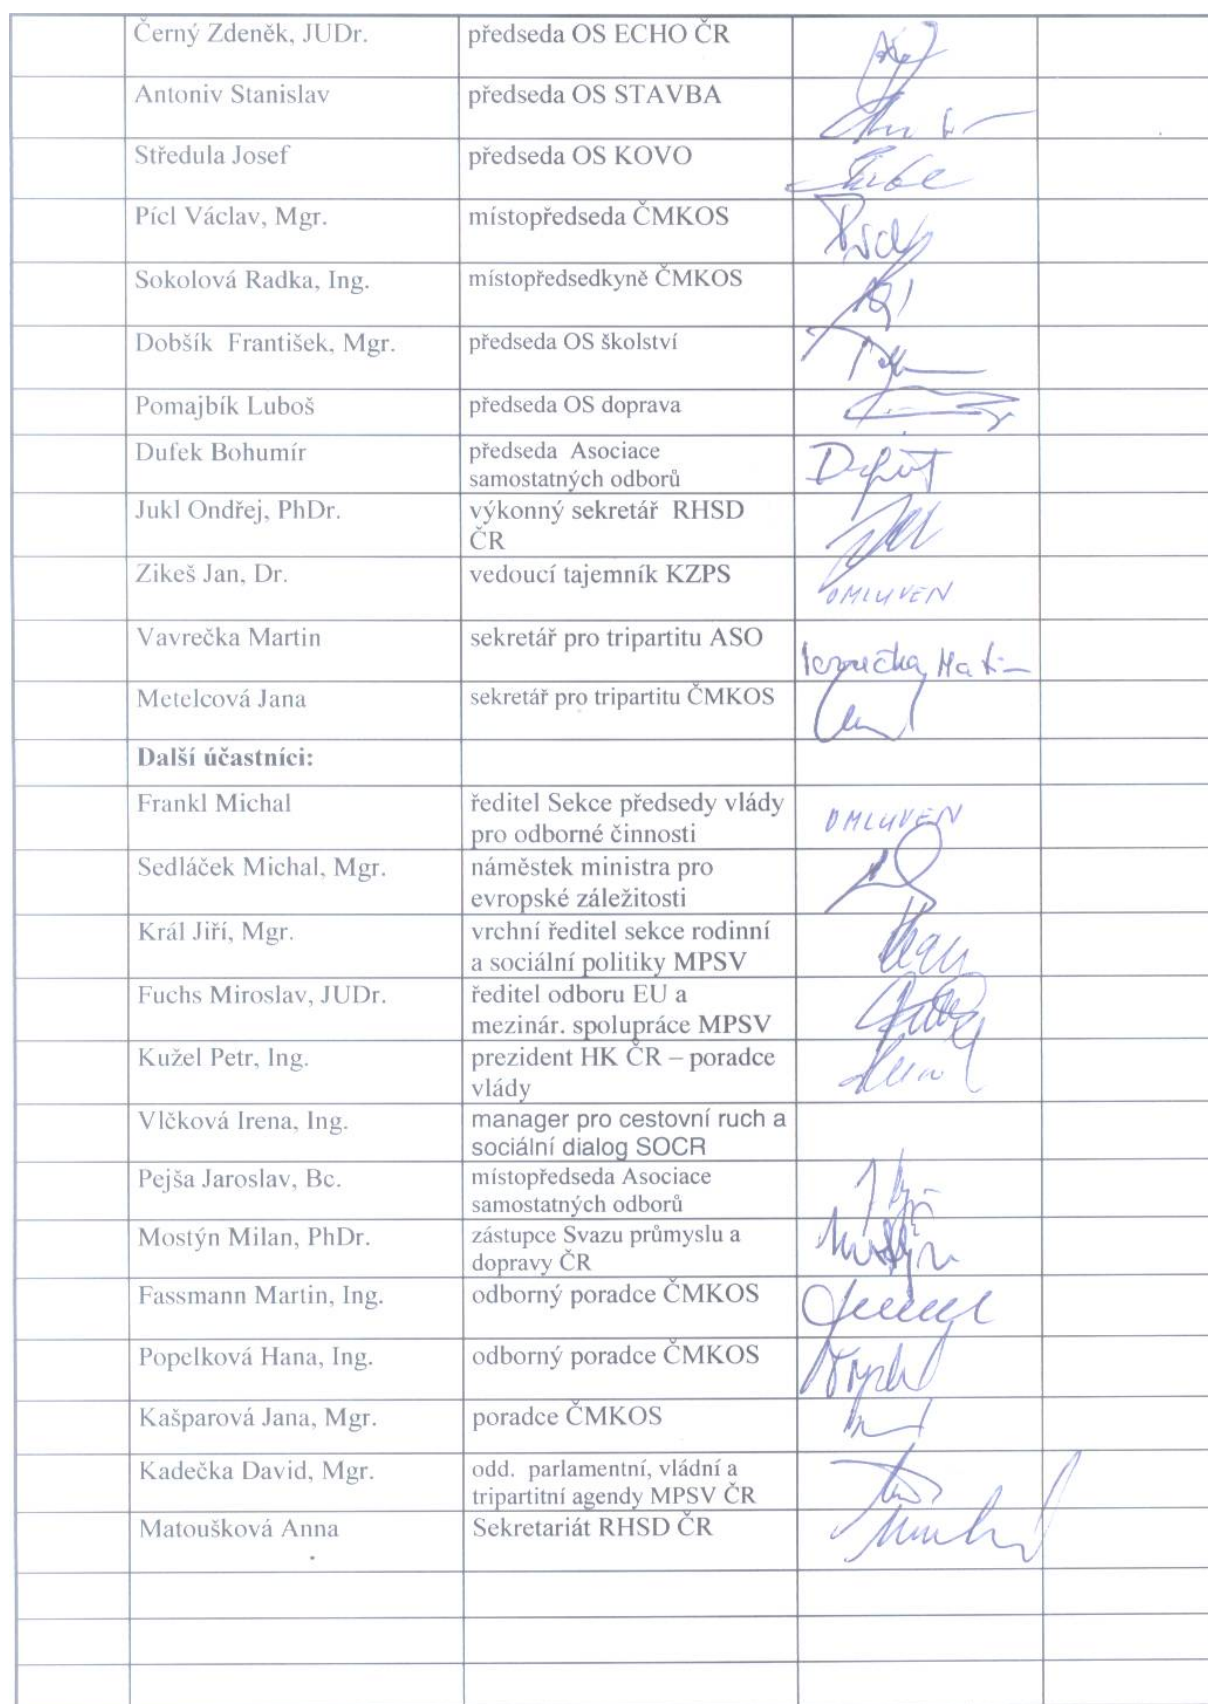 Černý Zdeněk, JUDr. předseda OS ECHO ČR
Antoniv Stanislav předseda OS STAVBA
Středula Josef předseda OS KOVO
Pícl Václav, Mgr. místopředseda ČMKOS
Sokolová Radka, Ing. místopředsedkyně ČMKOS
Dobšík František, Mgr. předseda OS školství
Pomajbík Luboš předseda OS doprava
Dufek Bohumír předseda Asociace
samostatných odborů
Jukl Ondřej, PhDr. výkonný sekretář RHSD
ČR
Zikeš Jan, Dr. vedoucí tajemník KZPS OMLUVEN
Vavrečka Martin sekretář pro tripartitu ASO
Metelcová Jana sekretář pro tripartitu ČMKOS
Další účastníci:
Frankl Michal ředitel Sekce předsedy vlády OMLUVEN
pro odborné činnosti
Sedláček Michal, Mgr. náměstek ministra pro
evropské záležitosti
Král Jiří, Mgr. vrchní ředitel sekce rodinní
a sociální politiky MPSV
Fuchs Miroslav, JUDr. ředitel odboru EU a
mezinár. spolupráce MPSV
Kužel Petr, Ing. prezident HK ČR – poradce
vlády
Vlčková Irena, Ing. manager pro cestovní ruch a
sociální dialog SOCR
Pejša Jaroslav, Bc. místopředseda Asociace
samostatných odborů
Mostýn Milan, PhDr. zástupce Svazu průmyslu a
dopravy ČR
Fassmann Martin, Ing. odborný poradce ČMKOS
Popelková Hana, Ing. odborný poradce ČMKOS
Kašparová Jana, Mgr. poradce ČMKOS
Kadečka David, Mgr. odd. parlamentní, vládní a
tripartitní agendy MPSV ČR
Matoušková Anna Sekretariát RHSD ČR